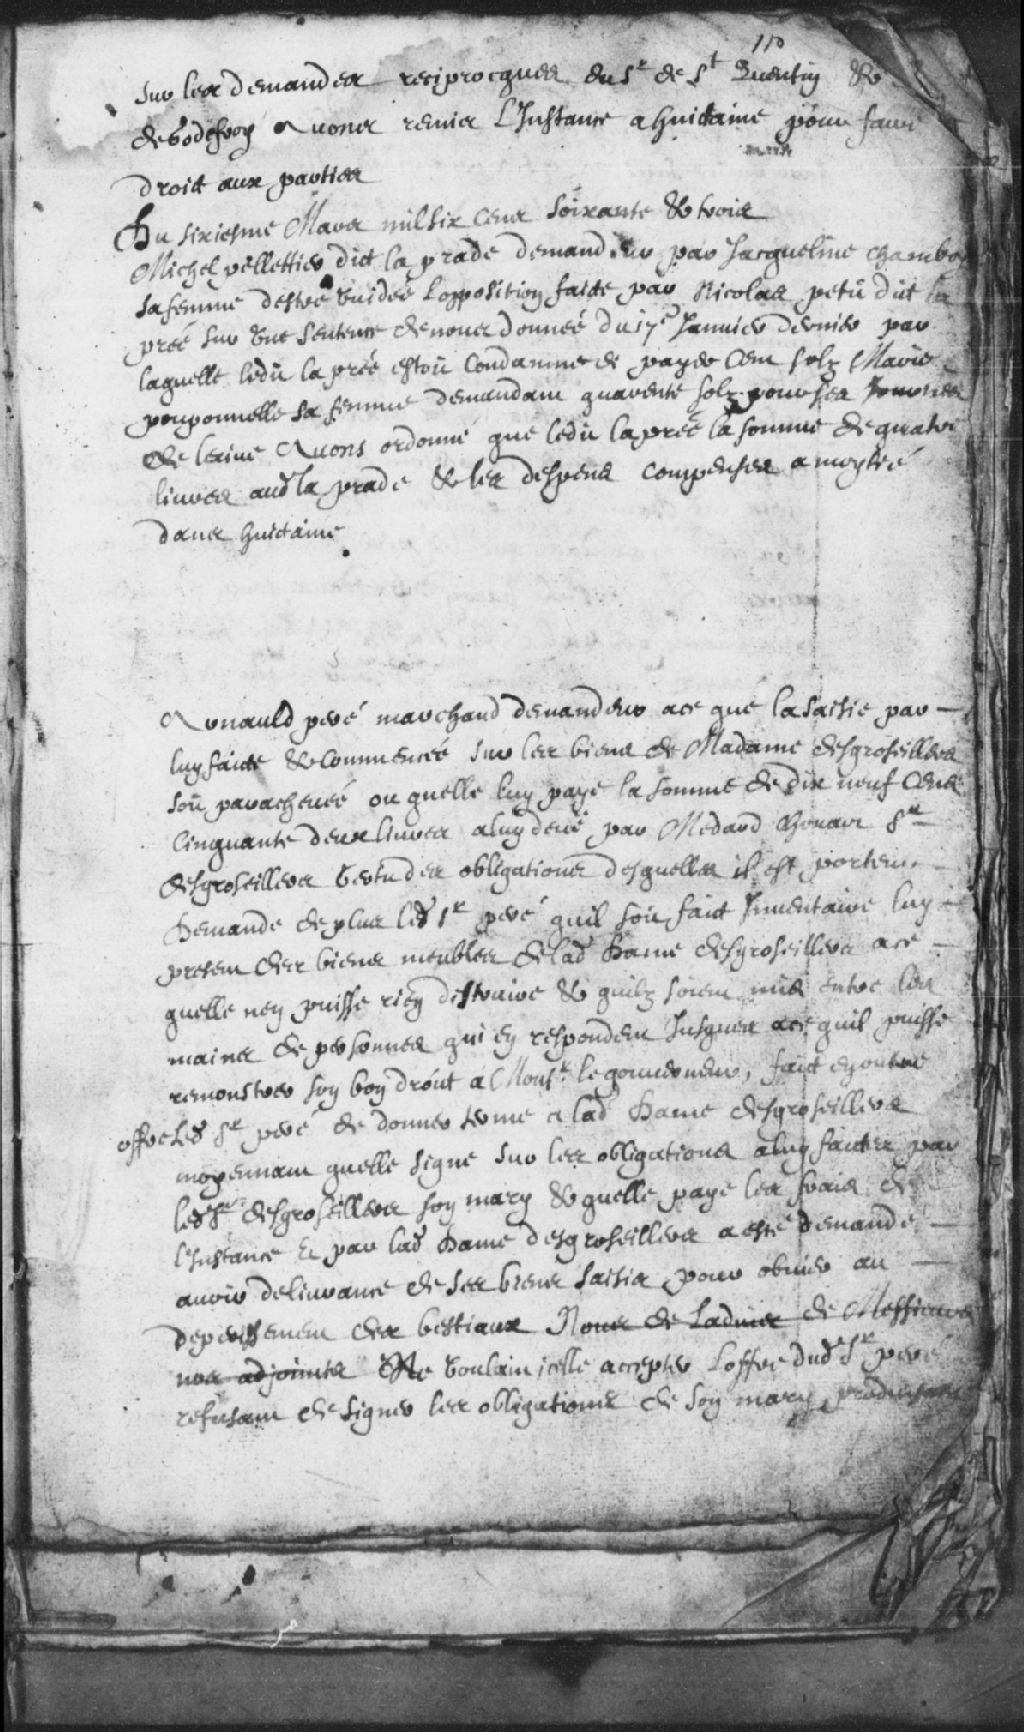 110
Sur les demandes reciprocques du Sr de St Quentin &
de Godefroy Avons remis L'Instance a huictaine pour faire
droict aux parties
Du sixiesme Mars mil six cens soixante & trois
Michel pellettier dict la prade demandeur par Jacqueline Chambo
sa femme destre vuideé Lopposition faicte par Nicolas petit dict la
preé sur une sentence de nous donneé du 17e Januier dernier par
laquelle ledit la preé estoit condamne de payer cent solz Marie
pouponnelle sa femme demandant quarente solz pour ses Journees
de lesiue Auons ordonné que ledit la preé la somme de quatre
liures aud la prade & les despens compenses a moytié
dans huictaine
Arnauld peré marchand demandeur a ce que la saisie par
luy faicte & commenceé sur les biens de Madame desgroseilliers
soit paracheueé ou quelle luy paye la somme de dix neuf cens
cinquante deux liures a luy deue par Medard Chouart Sr
desgroseillers vertu des obligations desquelles il est porteur
Demande de plus led Sr peré quil soit faict Inuentaire luy
present des biens meubles de lad Dame desgroseillers a ce
quelle ney puisse riey distraire & quilz soient mis entre les
mains de personnes qui ey respondent Jusques a ce quil puisse
remonstrer soy boy droict a Monsr le gouuerneur, faict ey outre
offre led Sr peré de donner terme a lad Dame desgroseillers
moyennant quelle signe sur les obligations a luy faictes par
led Sr desgroseillers soy mary & quelle paye les frais de
l'Instance Et par lad Dame desgroseillers a esté demandé
auoir deliurance de ses biens saisis pour obuier au
deperissement des bestiaux Nous de Ladvis de Messieurs
nos adjoints Ne voulant icelle accepter Loffre dud Sr peré
refusant de signer les obligations de soy mary